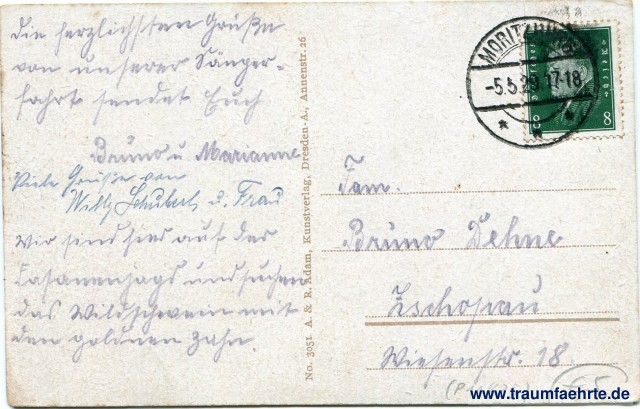 Die herzlichsten Grüße
von unserer Sänger-
fahrt sendet Euch
Bruno u Marianne
Viele Grüße von
Willy Schubert u. Frau
Wir sind hier auf der
Fasanenjagd und suchen
das Wildschwein mit
den goldnen Zahn.
No. 3051 A. & R. Adam, Kunstverlag, Dresden-A., Annenstr. 26
MORITZBURG
-5.5.29.17-18
8 8
Fam.
Bruno Dehne
Zschopau
Wiesenstr. 18.
www.traumfaehrte.de